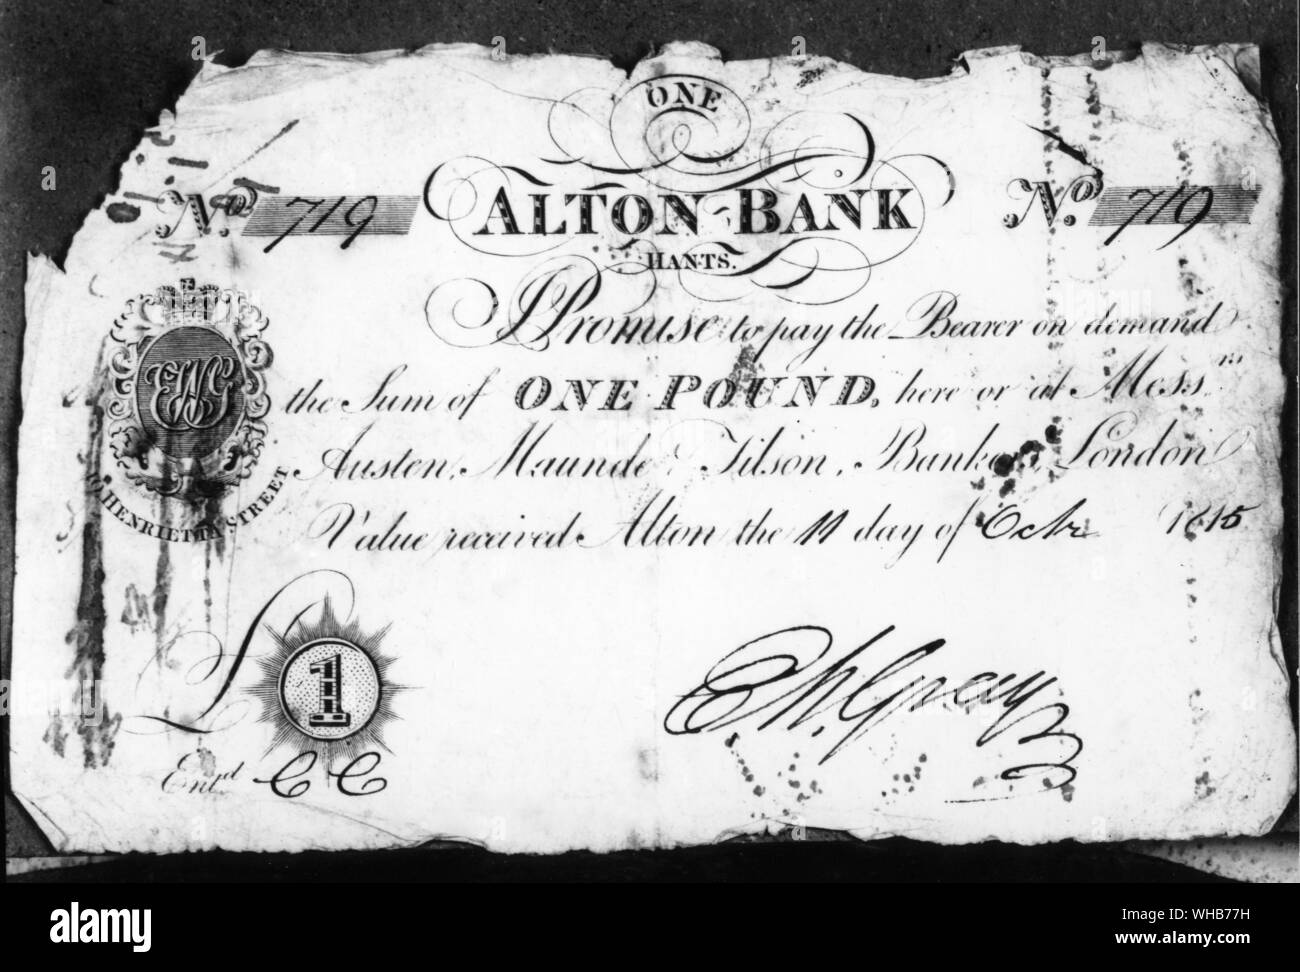 ONE
No. 719 ALTON BANK No. 719
HANTS.
I Promise to pay the Bearer on demand
the Sum of ONE POUND, here or at Mess.rs
Austen, Maunde & Tilson, Bankers, London
Value received Alton the 11 day of Octr 1815
EWG
10 HENRIETTA STREET
£ 1
E W Gray
Entd C C
alamy
a
Image ID: WHB77H
www.alamy.com